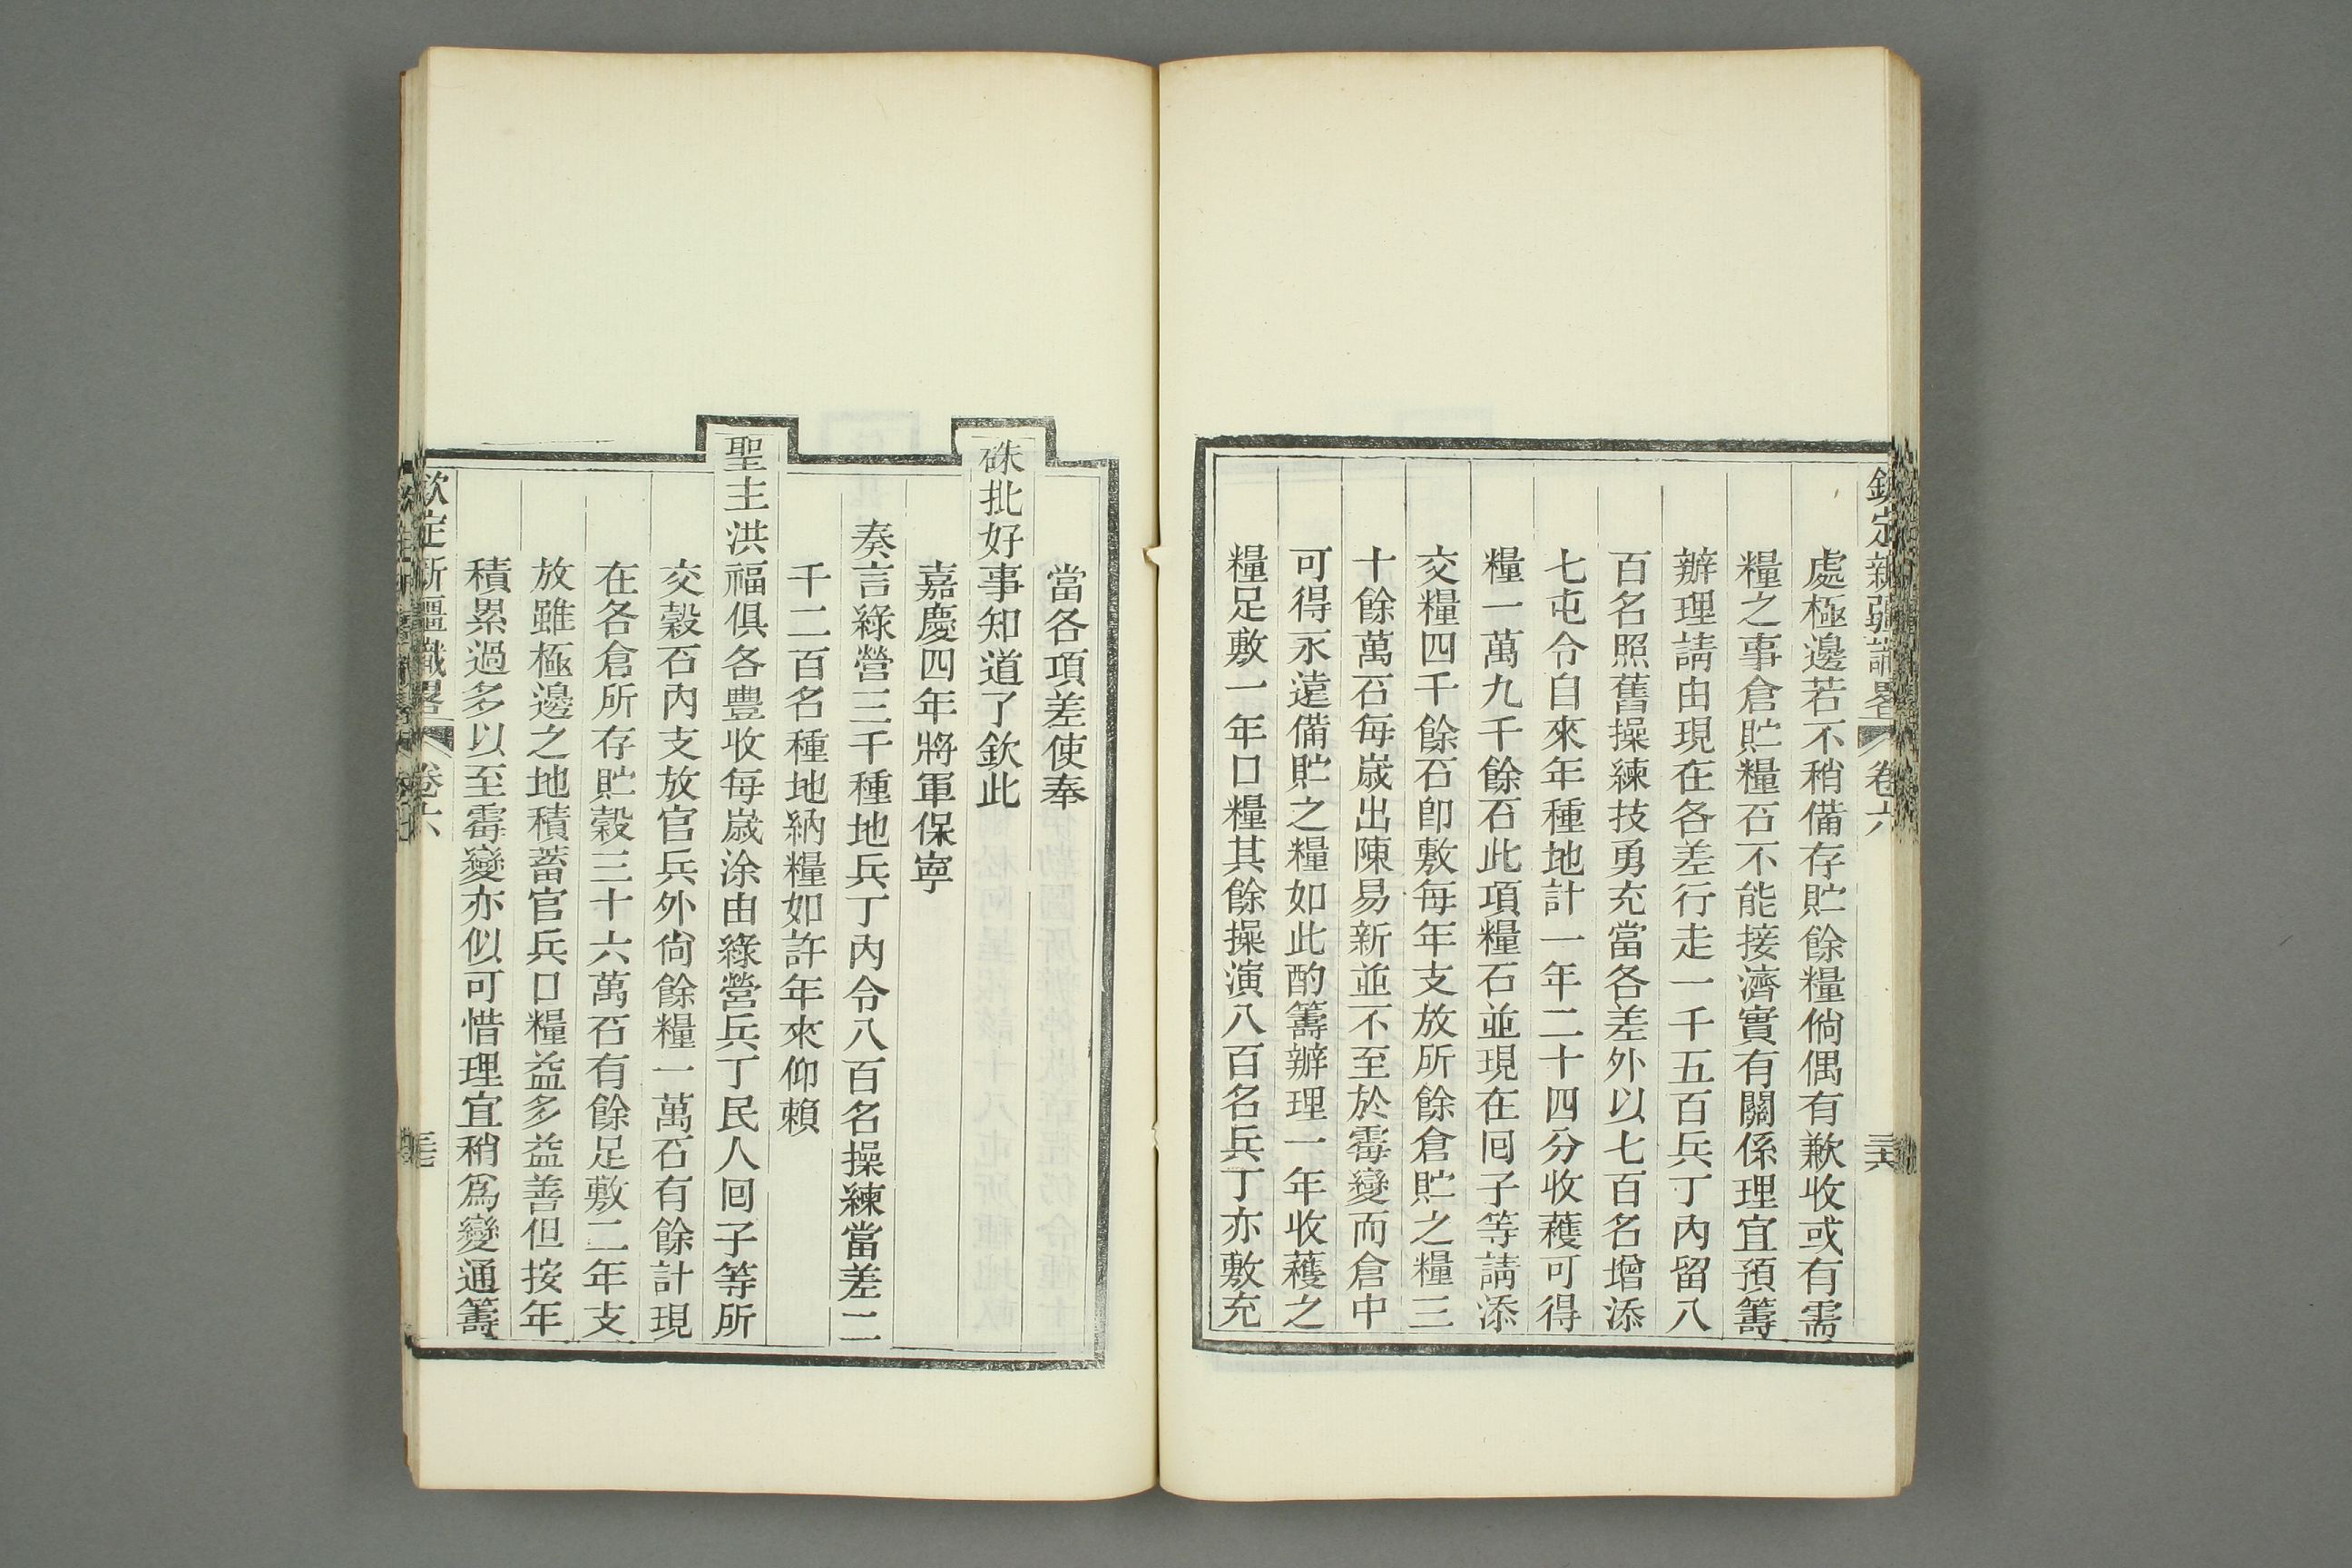 欽定新疆識畧 卷六 三十六
處極邊若不稍備存貯餘糧倘偶有歉收或有需
糧之事倉貯糧石不能接濟實有關係理宜預籌
辦理請由現在各差行走一千五百兵丁內留八
百名照舊操練技勇充當各差外以七百名增添
七屯令自來年種地計一年二十四分收穫可得
糧一萬九千餘石此項糧石並現在囘子等請添
交糧四千餘石卽敷每年支放所餘倉貯之糧三
十餘萬石每嵗出陳易新並不至於霉變而倉中
可得永遠備貯之糧如此酌籌辦理一年收穫之
糧足敷一年口糧其餘操演八百名兵丁亦敷充
當各項差使奉
硃批好事知道了欽此
嘉慶四年將軍保寧
奏言綠營三千種地兵丁內令八百名操練當差二
千二百名種地納糧如許年來仰賴
聖主洪福俱各豐收每嵗涂由綠營兵丁民人囘子等所
交穀石內支放官兵外尙餘糧一萬石有餘計現
在各倉所存貯穀三十六萬石有餘足敷二年支
放雖極邊之地積蓄官兵口糧益多益善但按年
積累過多以至霉變亦似可惜理宜稍爲變通籌
欽定新疆識畧 卷六 三十七